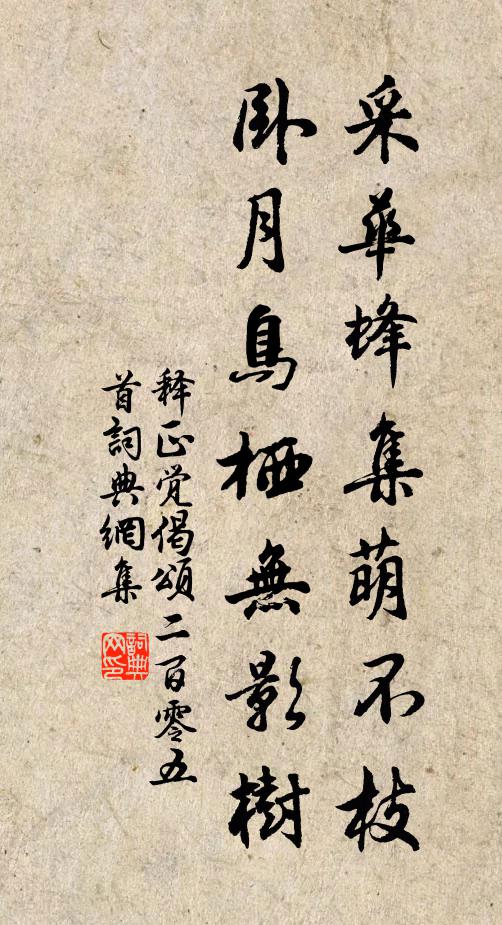 采華蜂集萌不枝
臥月鳥栖無影樹
释正觉偈頌二百零五
首詞典網集
詞典网印